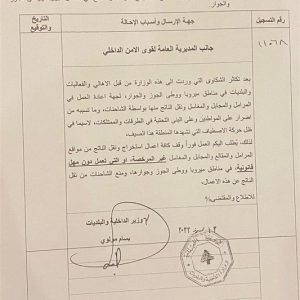 والجوار
رقم التسجيل
جهة الإرسال وأسباب الإحالة
التاريخ
والتوقيع
١١٠٦٨
جانب المديرية العامة لقوى الامن الداخلي
بعد تكاثر الشكاوى التي وردت الى هذه الوزارة من قبل الاهالي والفعاليات
والبلديات في مناطق ميروبا ووطى الجوز والجوار، لجهة اعادة العمل في
المرامل والمجابل والمغاسل ونقل الناتج منها بواسطة الشاحنات، وما تسببه من
اضرار على المواطنين وعلى البنى التحتية في الطرقات والممتلكات، لاسيما في
ظل حركة الاصطياف التي تشهدها المنطقة هذا الصيف،
لذلك، يطلب اليكم العمل فوراً وقف كافة اعمال استخراج ونقل الناتج من مواقع
المرامل والمقالع والمجابل والمغاسل غير المرخصة، او التي تعمل دون مهل
قانونية، في مناطق ميروبا ووطى الجوز وجوارها، ومنع الشاحنات من نقل
الناتج عن هذه الاعمال.
للاطلاع والمقتضى/.
وزير الداخلية والبلديات
بسام مولوي
٢٠٢٢